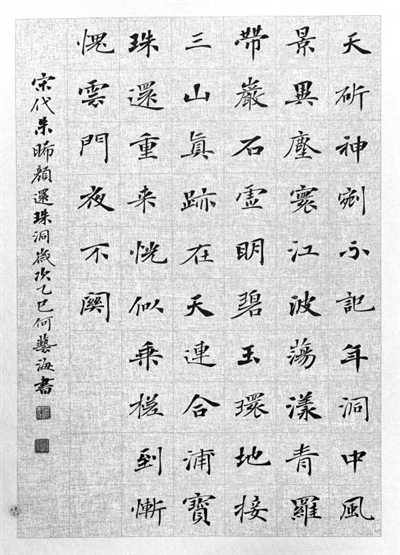 天斫神剜不記年洞中風
景異塵寰江波蕩漾青羅
帶巖石虛明碧玉環地接
三山眞跡在天連合浦寶
珠還重来恍似乘槎到慚
愧雲門夜不關
宋代朱晞顏還珠洞歲次乙巳何藝海書